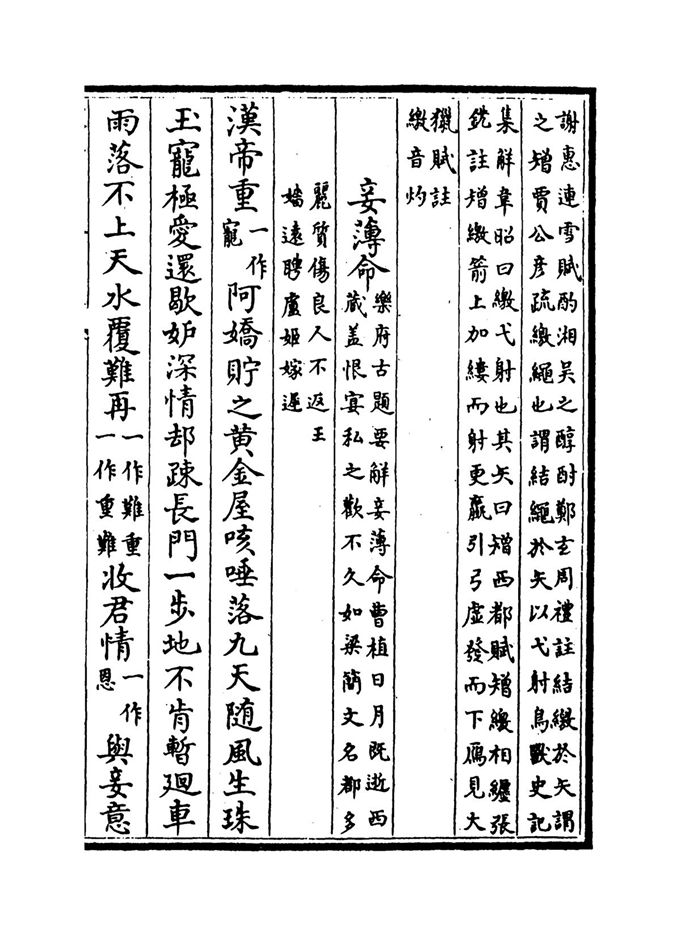 謝惠連雪賦酌湘吳之醇酎鄭玄周禮註結繳於矢謂
之矰賈公彥疏繳繩也謂結繩於矢以弋射鳥獸史記
集解韋昭曰繳弋射也其矢曰矰西都賦矰繳相纒張
銑註矰繳箭上加縷而射更羸引弓虛發而下鴈見大
獵賦註
繳音灼
妾薄命
樂府古題要解妾薄命曹植日月既逝西
藏盖恨宴私之歡不久如梁簡文名都多
麗質傷良人不返王
嬙遠聘盧姬嫁遲
漢帝重
一作
寵
阿嬌貯之黄金屋咳唾落九天随風生珠
玉寵極愛還歇妒深情却疎長門一歩地不肯暫廻車
雨落不上天水覆難再
一作難重
一作重難
收君情
一作
恩
與妾意